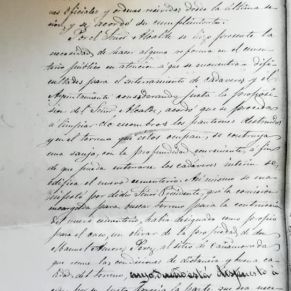 nes oficiales y ordenes recibidas desde la última se-
sion, y se acordó su cumplimiento.
Por el Señor Alcalde se hizo presente la
necesidad de hacer alguna reforma en el cemen-
terio público en atencion a que se encuentra difi-
cultades para el enterramiento de cadaveres y el
Ayuntamiento considerando justa la proposi-
sion del Señor Alcalde, acordó que se proceda
a limpiar de escombros los pantanos destruidos
y en el terreno que estos ocupan, se construya
una zanja, con la profundidad conveniente, a fin
de que puedan enterrarse los cadaveres interin se
edifica el nuevo cementerio. Asi mismo se ma-
nifestó por dicho Señor Presidente, que la comision
encargada para buscar terreno para la construccion
del nuevo cementerio, habia designado como propio
para el caso, un olivar de la propiedad de Don
Manuel Perez, al sitio de
que reune las condiciones de distancia y buena ca-
lidad del terreno, cuyo dueño está dispuesto á
la parte que sea nece-